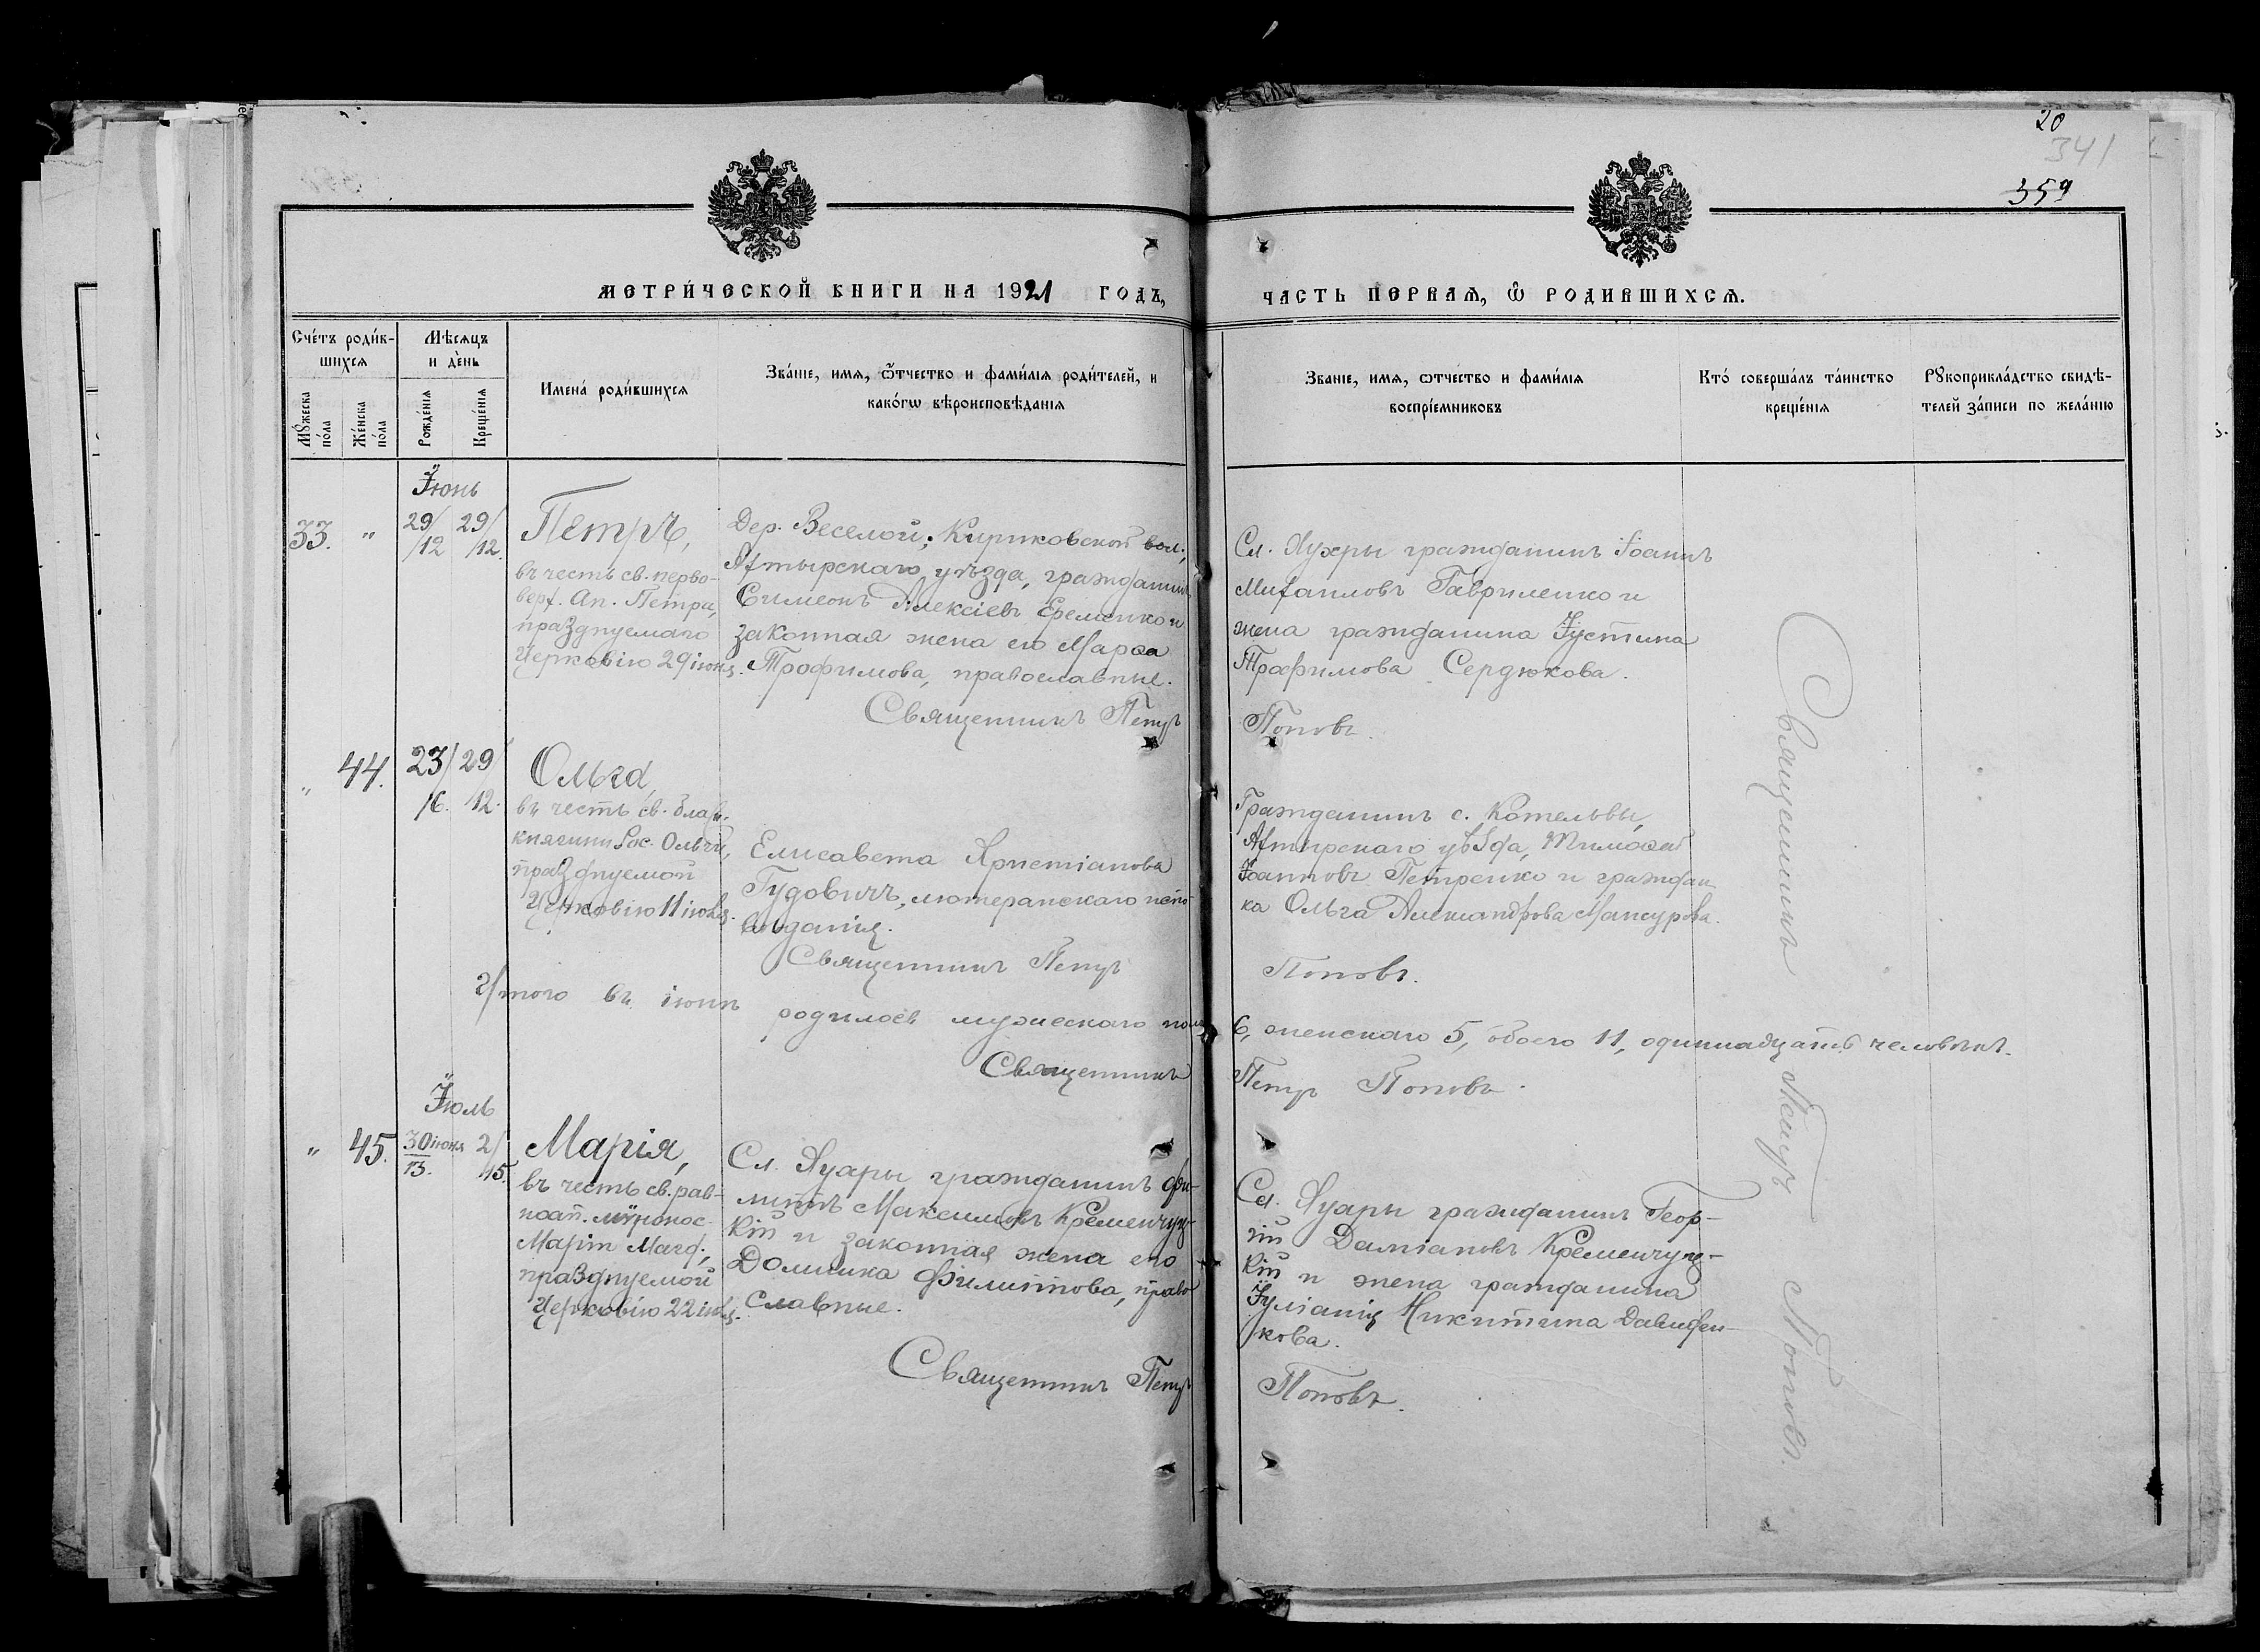 20
341
359
МЕТРИ́ЧЕСКОЙ КНИГИ НА 1921 ГОДЪ,
ЧАСТЬ ПЕРВАЯ, Ѡ҃ РОДИВШИХСЯ.
Сче́тъ роди́в-
шихся
Мѣсяцъ
и де́нь
Мꙋ́жеска
по́ла
Же́нска
по́ла
Рожде́нїя
Креще́нїя
Имена́ роди́вшихся
Зва́нїе, имя, ѿтчество и фами́лїя роди́телей, и
како́гѡ вѣроисповѣ́данїя
Званїе, имя, ѿтчество и фами́лїя
воспрїе́мниковъ
Кто́ соверша́лъ та́инство
креще́нїя
Рꙋкоприкла́дство свидѣ́-
телей за́писи по жела́нїю
Іюнь
33. " 29/12 29/12.
Петръ,
въ честь св. перво-
верх. Ап. Петра,
празднуемаго
Церковію 29 іюня.
Дер. Веселой, Кириковской вол.,
Ахтырскаго уѣзда, гражданинъ
Симеонъ Алексіевъ Еременко и
законная жена его Марѳа
Трофимова, православные.
Священникъ Петръ
Сл. Хухры гражданинъ Іоаннъ
Михаиловъ Гавриленко и
жена гражданина Іустина
Трофимова Сердюкова.
Поповъ.
" 44. 23/6. 29/12.
Ольга,
въ честь св. благ.
княгини Рос. Ольги,
празднуемой
Церковію 11 іюля.
Елисавета Христіанова
Гудовичъ, лютеранскаго испо-
вѣданія.
Священникъ Петръ
Гражданинъ с. Котельвы,
Ахтырскаго уѣзда, Тимоѳей
Іоанновъ Петренко и граждан-
ка Ольга Александрова Мансурова.
Поповъ.
Итого въ іюнѣ родилось мужескаго пола 6, женскаго 5, обоего 11, одиннадцать человѣкъ.
Священникъ Петръ Поповъ.
Іюль
" 45. 30 іюня/13. 2/15.
Марія,
въ честь св. рав-
ноап. мѵронос.
Маріи Магд.,
празднуемой
Церковію 22 іюля.
Сл. Хухры гражданинъ Фи-
липпъ Максимовъ Кременчуц-
кій и законная жена его
Домника Филиппова, право
славные.
Священникъ Петръ
Сл. Хухры гражданинъ Геор-
гій Даміановъ Кременчуц-
кій и жена гражданина
Іуліанія Никитина Давиден-
кова.
Поповъ.
Священникъ Петръ Поповъ.